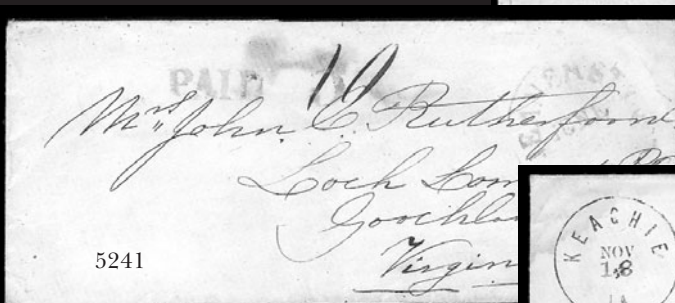 PAID
10
Mrs John C. Rutherfoord
Loch Lom
Goochla
Virgin
5241
KEACHIE
NOV
18